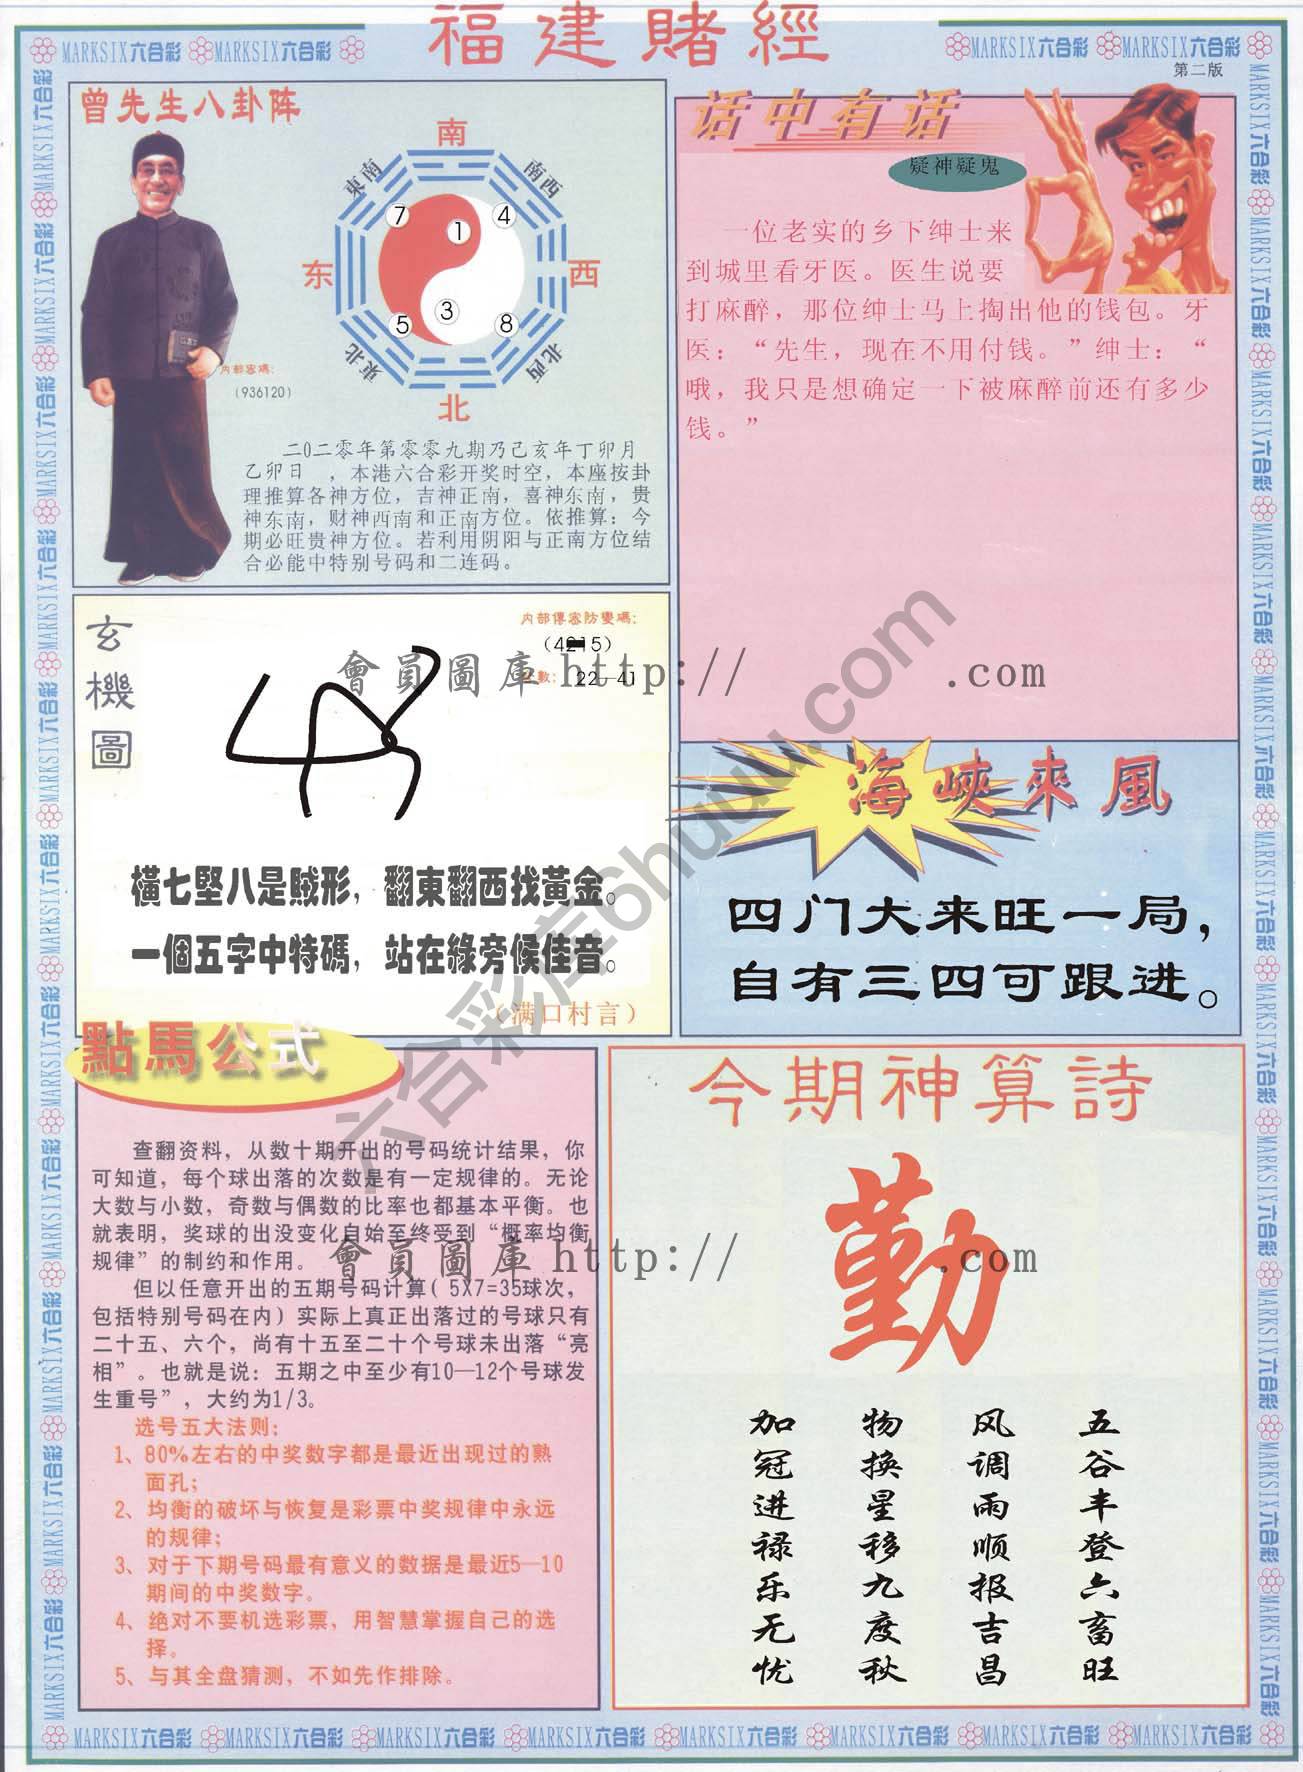 福建賭經
MARKSIX六合彩 MARKSIX六合彩
MARKSIX六合彩 MARKSIX六合彩
第二版
曾先生八卦阵
南
東南
南西
7
1
4
东
西
5
3
8
東北
北西
北
内部密碼：
（936120）
二0二零年第零零九期乃己亥年丁卯月
乙卯日　，本港六合彩开奖时空，本座按卦
理推算各神方位，吉神正南，喜神东南，贵
神东南，财神西南和正南方位。依推算：今
期必旺贵神方位。若利用阴阳与正南方位结
合必能中特别号码和二连码。
话中有话
疑神疑鬼
一位老实的乡下绅士来
到城里看牙医。医生说要
打麻醉，那位绅士马上掏出他的钱包。牙
医：“先生，现在不用付钱。”绅士：“
哦，我只是想确定一下被麻醉前还有多少
钱。”
玄機圖
内部傳密防變碼：
22—41
會員圖庫 http:// .com
橫七堅八是賊形，翻東翻西找黃金。
一個五字中特碼，站在綠旁候佳音。
（满口村言）
海峽來風
四门大来旺一局，
自有三四可跟进。
六合彩库6huuu.com
點馬公式
查翻资料，从数十期开出的号码统计结果，你
可知道，每个球出落的次数是有一定规律的。无论
大数与小数，奇数与偶数的比率也都基本平衡。也
就表明，奖球的出没变化自始至终受到“概率均衡
规律”的制约和作用。
但以任意开出的五期号码计算( 5X7=35球次，
包括特别号码在内）实际上真正出落过的号球只有
二十五、六个，尚有十五至二十个号球未出落“亮
相”。也就是说：五期之中至少有10—12个号球发
生重号”，大约为1/3。
选号五大法则；
1、80%左右的中奖数字都是最近出现过的熟
面孔；
2、均衡的破坏与恢复是彩票中奖规律中永远
的规律；
3、对于下期号码最有意义的数据是最近5—10
期间的中奖数字。
4、绝对不要机选彩票，用智慧掌握自己的选
择。
5、与其全盘猜测，不如先作排除。
會員圖庫 http:// .com
今期神算詩
勤
五谷丰登六畜旺
风调雨顺报吉昌
物换星移九度秋
加冠进禄乐无忧
MARKSIX六合彩 MARKSIX六合彩 MARKSIX六合彩 MARKSIX六合彩 MARKSIX六合彩 MARKSIX六合彩 MARKSIX六合彩 MARKSIX六合彩